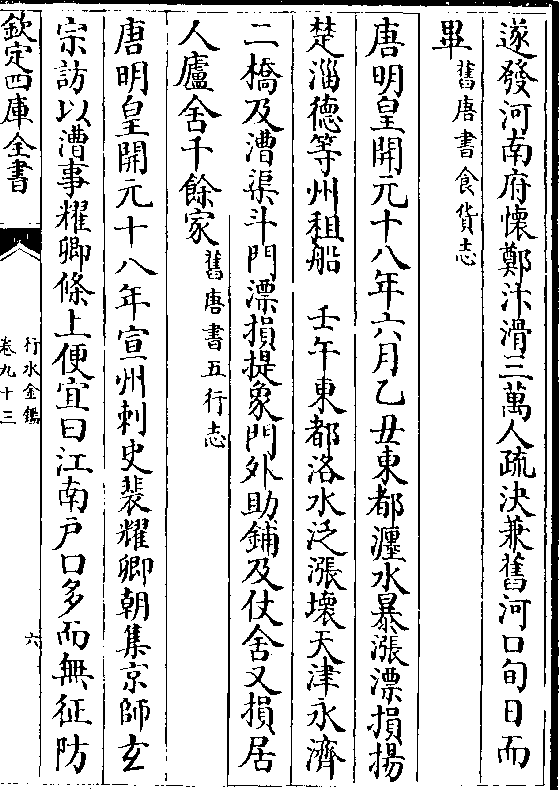 遂發河南府懷鄭汴滑三萬人疏決兼舊河口旬日而
畢舊唐書食貨志
唐明皇開元十八年六月乙丑東都瀍水暴漲漂損揚
楚淄德等州租船　壬午東都洛水泛漲壞天津永濟
二橋及漕渠斗門漂損提象門外助鋪及仗舍又損居
人廬舍千餘家舊唐書五行志
唐明皇開元十八年宣州刺史裴耀卿朝集京師玄
宗訪以漕事耀卿條上便宜曰江南戶口多而無征防
欽定四庫全書
行水金鑑
卷九十三
六